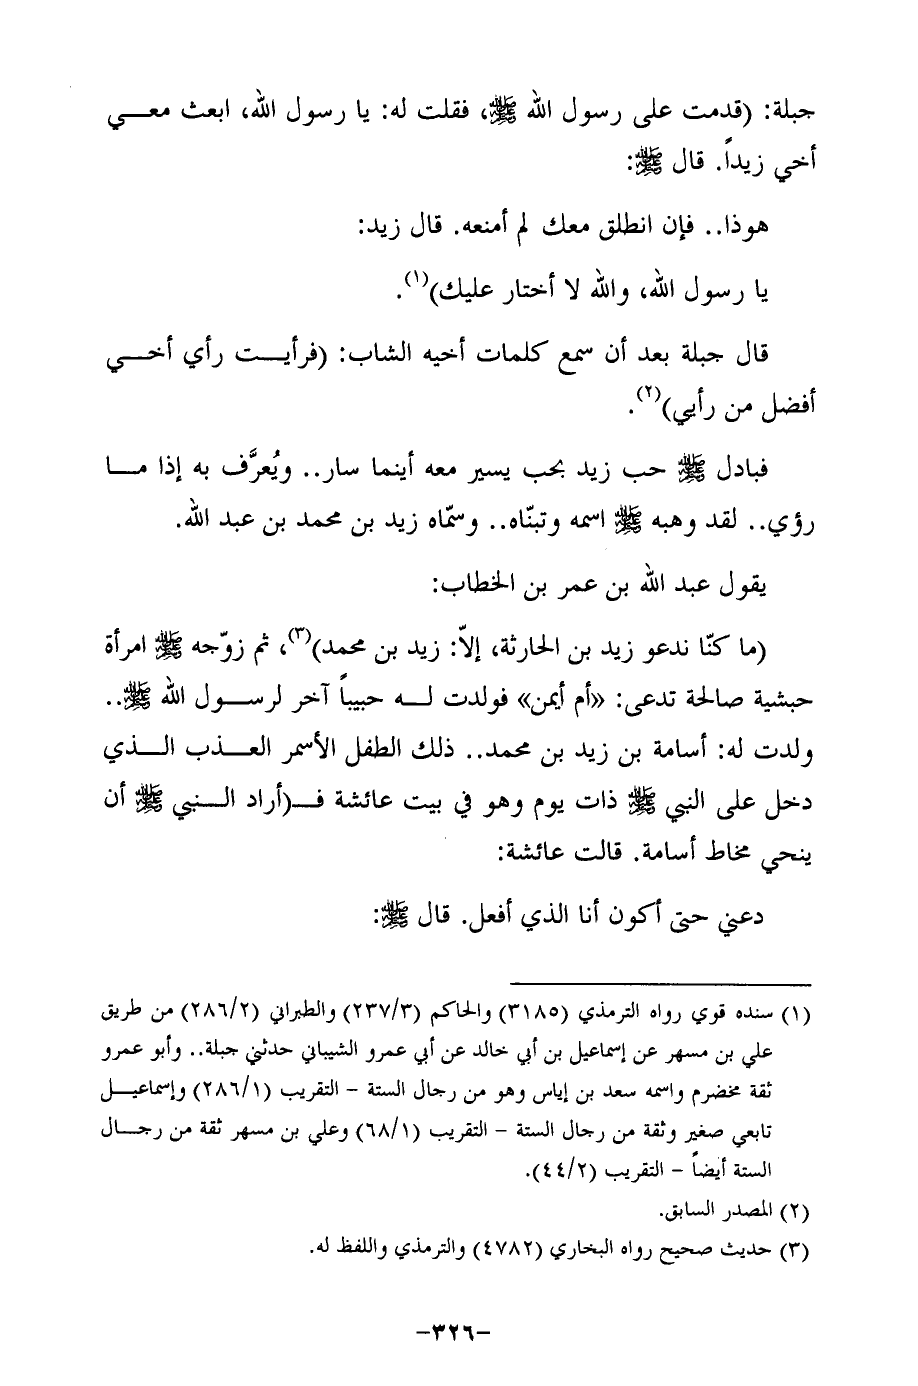 جبلة: (قدمت على رسول الله ﷺ، فقلت له: يا رسول الله، ابعث معـــي
أخي زيداً. قال ﷺ:
هوذا.. فإن انطلق معك لم أمنعه. قال زيد:
يا رسول الله، والله لا أختار عليك)(١).
قال جبلة بعد أن سمع كلمات أخيه الشاب: (فرأيـــت رأي أخـــي
أفضل من رأيي)(٢).
فبادل ﷺ حب زيد بحب يسير معه أينما سار.. ويُعرَّف به إذا مـــا
رؤي.. لقد وهبه ﷺ اسمه وتبنّاه.. وسمّاه زيد بن محمد بن عبد الله.
يقول عبد الله بن عمر بن الخطاب:
(ما كنّا ندعو زيد بن الحارثة، إلاّ: زيد بن محمد)(٣)، ثم زوّجه ﷺ امرأة
حبشية صالحة تدعى: «أم أيمن» فولدت لـــه حبيباً آخر لرســـول الله ﷺ..
ولدت له: أسامة بن زيد بن محمد.. ذلك الطفل الأسمر العـــذب الـــذي
دخل على النبي ﷺ ذات يوم وهو في بيت عائشة فـــ(أراد الـــنبي ﷺ أن
ينحي مخاط أسامة. قالت عائشة:
دعني حتى أكون أنا الذي أفعل. قال ﷺ:
(١) سنده قوي رواه الترمذي (٣١٨٥) والحاكم (٢٣٧/٣) والطبراني (٢٨٦/٢) من طريق
علي بن مسهر عن إسماعيل بن أبي خالد عن أبي عمرو الشيباني حدثني جبلة.. وأبو عمرو
ثقة مخضرم واسمه سعد بن إياس وهو من رجال الستة – التقريب (٢٨٦/١) وإسماعيـــل
تابعي صغير وثقة من رجال الستة – التقريب (٦٨/١) وعلي بن مسهر ثقة من رجـــال
الستة أيضاً – التقريب (٤٤/٢).
(٢) المصدر السابق.
(٣) حديث صحيح رواه البخاري (٤٧٨٢) والترمذي واللفظ له.
–٣٢٦–